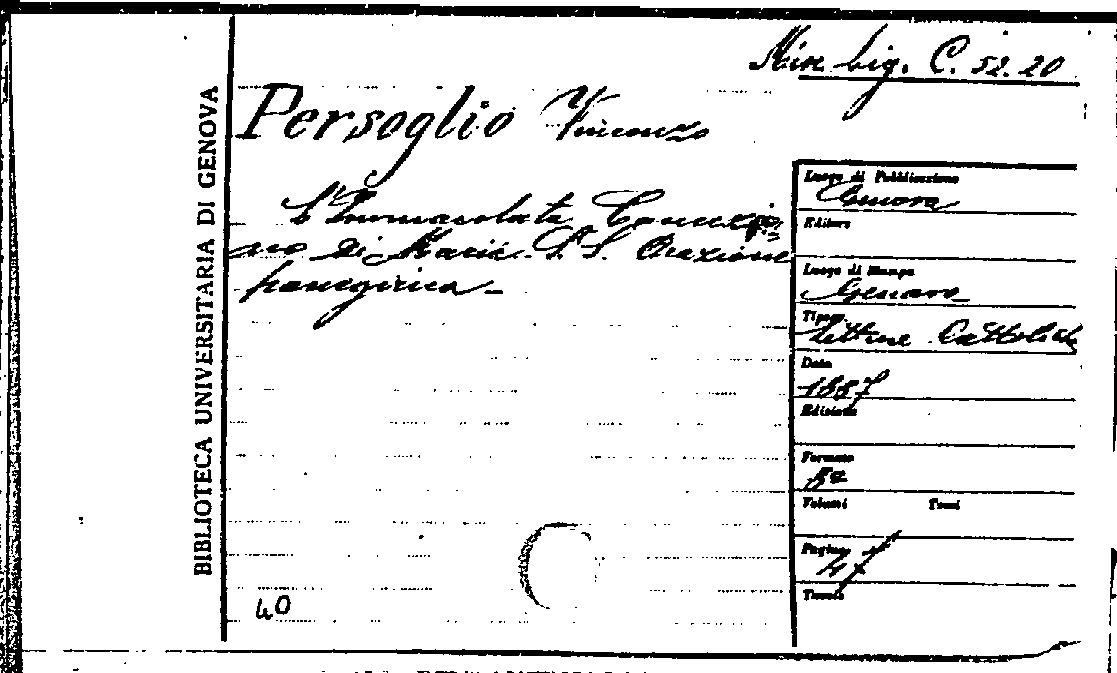 Misc lig. C. 52. 20
BIBLIOTECA UNIVERSITARIA DI GENOVA
Persoglio Vincenzo
L'Immacolata Concezio
ne di Maria S. S. Orazione
panegirica -
Luogo di Pubblicazione
Genova
Editore
Luogo di Stampa
Genova
Tipogr.
letture Cattoliche
Data
1887
Edizione
Formato
Volumi Tomi
Pagine
47
Tavole
40